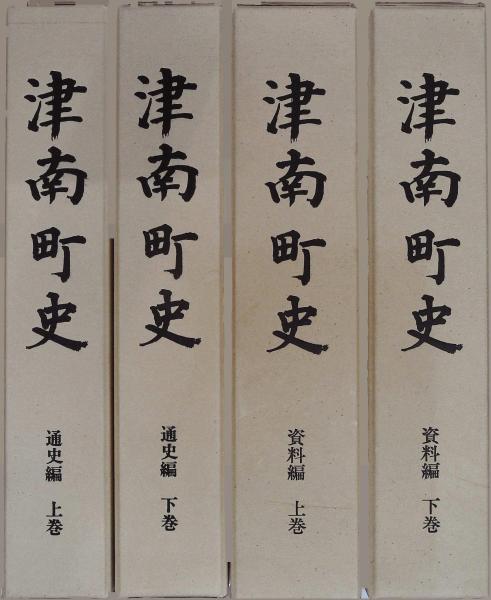 津南町史
通史編 上巻
津南町史
通史編 下巻
津南町史
資料編 上巻
津南町史
資料編 下巻